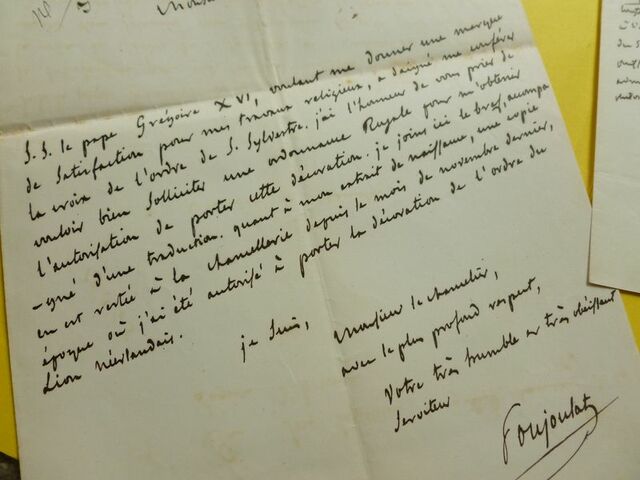 S. S. le pape Grégoire XVI, voulant me donner une marque
de satisfaction pour mes travaux religieux, a daigné me conférer
la croix de l'ordre de S. Sylvestre. j'ai l'honneur de vous prier de
vouloir bien solliciter une ordonnance Royale pour m'obtenir
l'autorisation de porter cette décoration. je joins ici le bref, accompa
-gné d'une traduction. quant à mon extrait de naissance, une copie
en est restée à la chancellerie depuis le mois de novembre dernier,
époque où j'ai été autorisé à porter la décoration de l'ordre du
Lion néerlandais.
je suis, Monsieur le chancelier,
avec le plus profond respect,
votre très humble et très obéissant
serviteur
Poujoulat